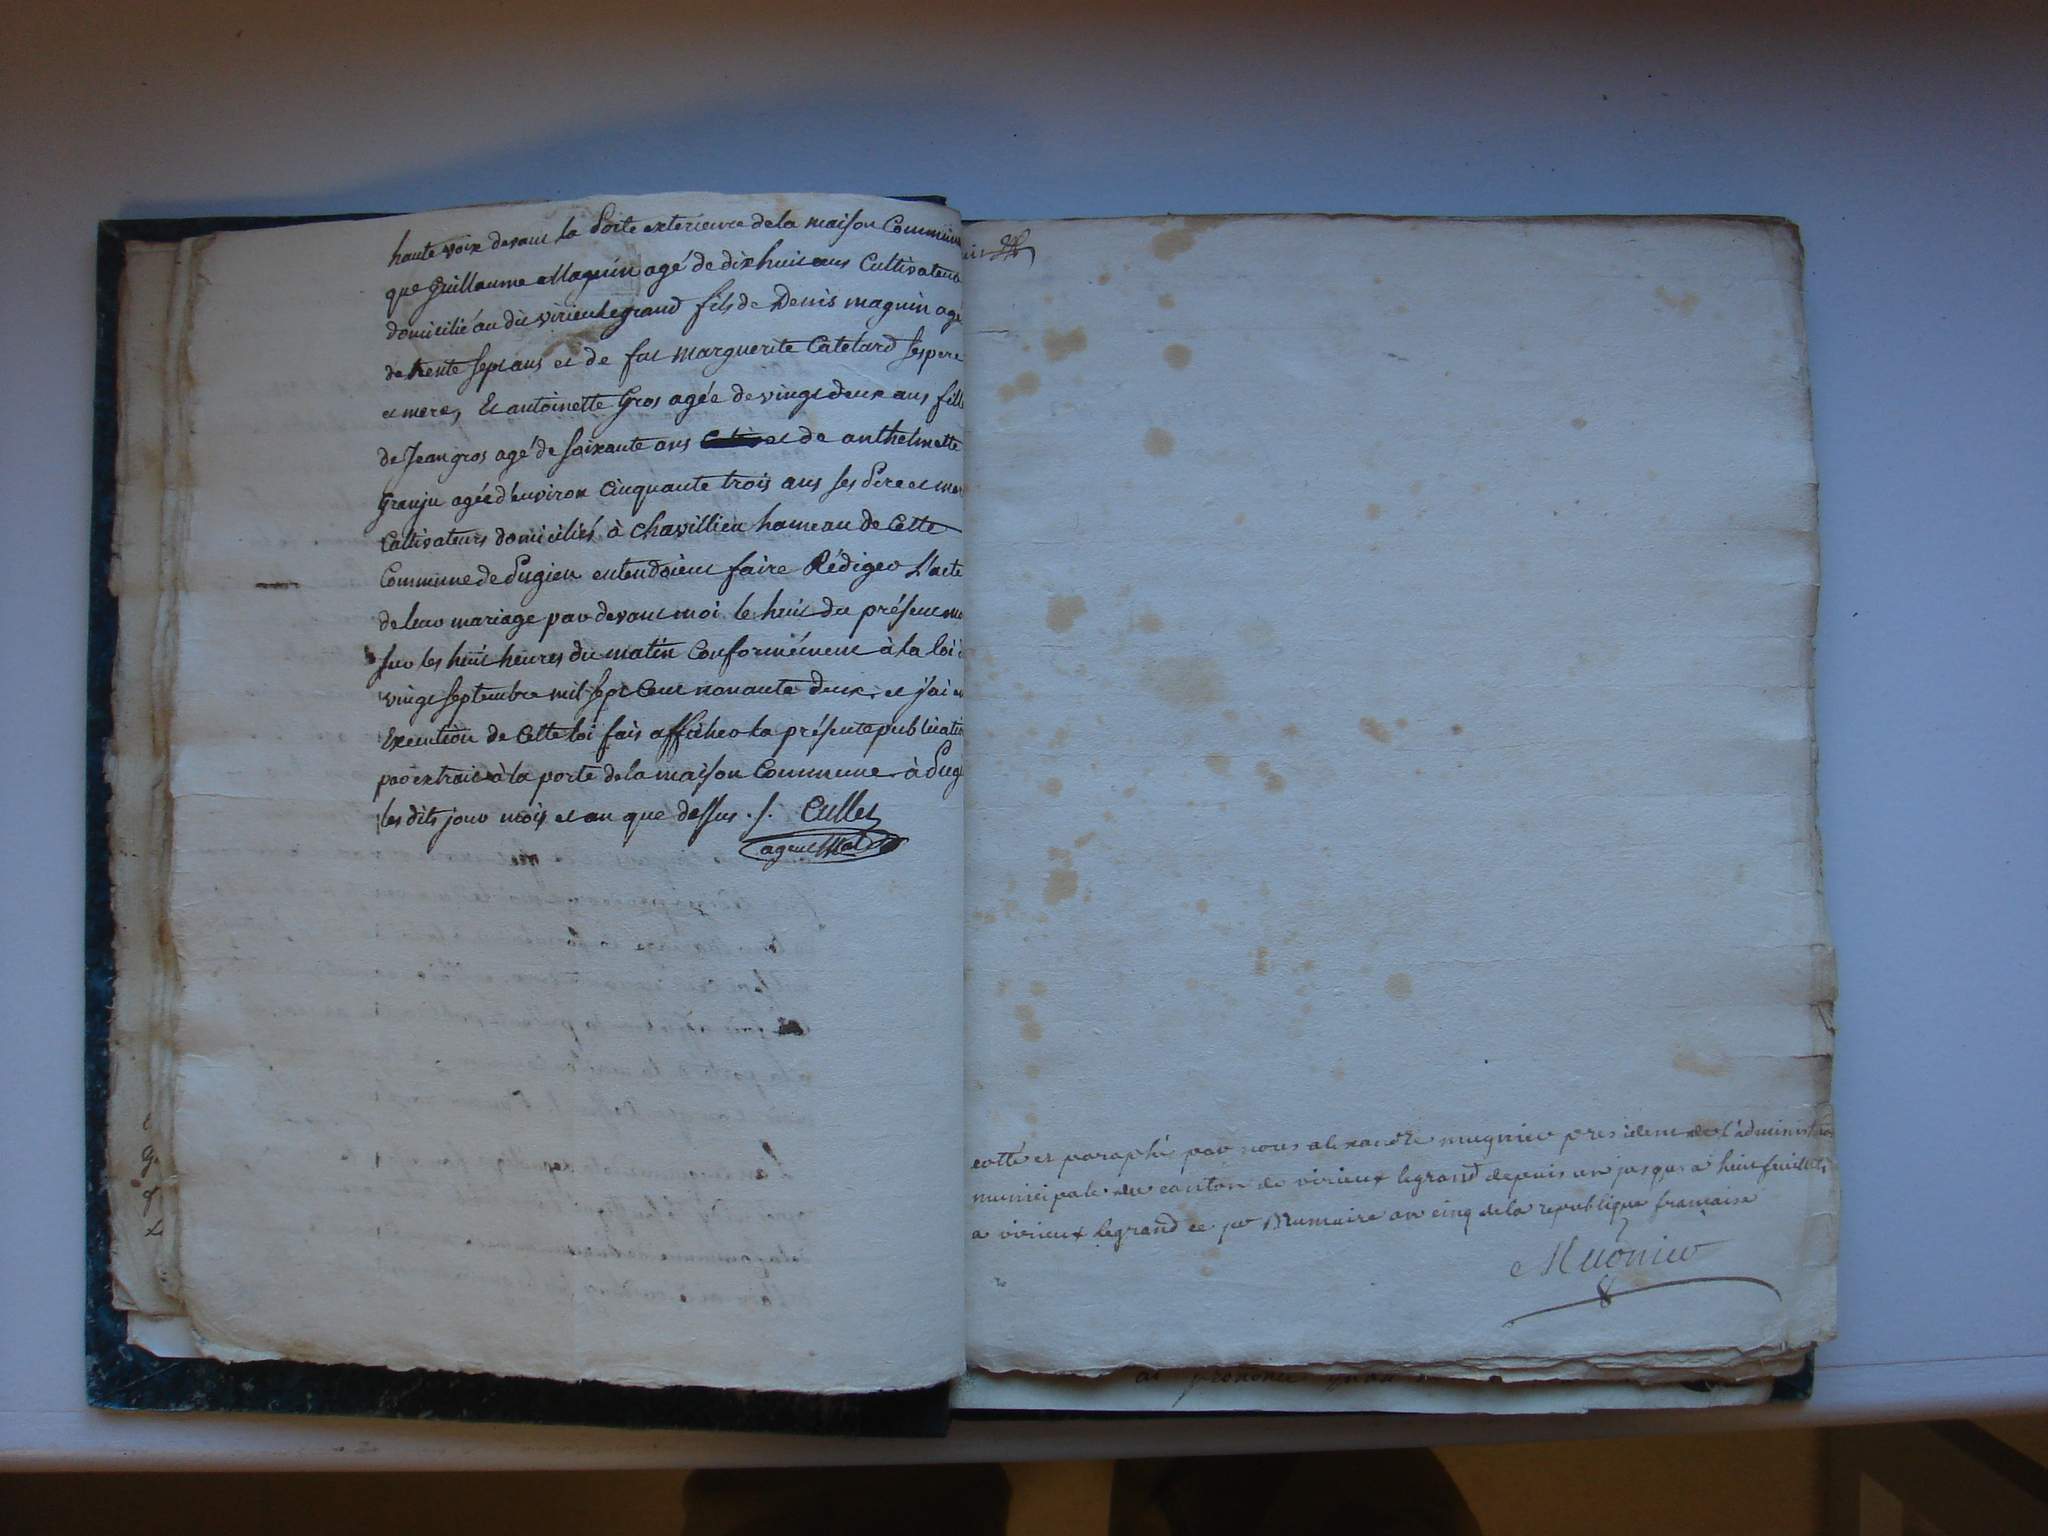 haute voix devant la Porte exterieure de la maison Commune
que Guillaume Maguin agé de dixhuit ans Cultivateur
domicilié au dit virieulegrand fils de Denis maguin agé
de trente sept ans et de fut Marguerite Catelard ses pere
et mere, Et antoinette Gros agée de vingt deux ans fille
de Jean gros agé de soixante ans et de anthelmette
Granju agée d'environ Cinquante trois ans ses Pere et mer
Cultivateurs domiciliés à Chavillieu hameau de Cette
Commune de Pugieu entendoient faire Rédiger L'acte
de leur mariage par devant moi le huit du présent mo
sur les huit heures du matin Conformément à la loi d
vingt septembre mil sept Cent nonante deux, et j'ai en
Execution de Cette loi fais afficher la présente publicatio
par extrait à la porte de la maison Commune à Pug
les dits jour mois et an que dessus ./. Cullet
agent Mal
cotté et paraphé par nous alexandre mugnier president de l'administra
municipale du canton de virieux legrand depuis un jusqua a huit feuillets
a virieux legrand ce pr Brumaire an cinq de la republique francaise
Mugnier